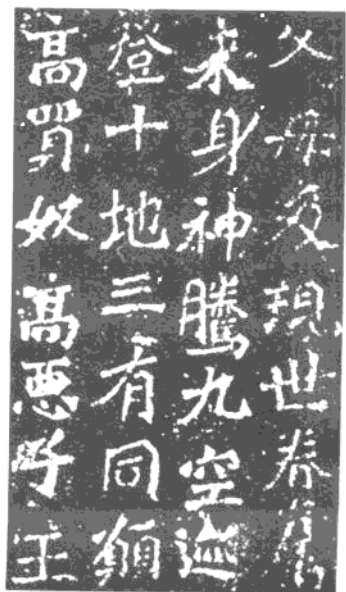 父母及現世眷属
来身神騰九空迹
登十地三有同願
高買奴高惡子王